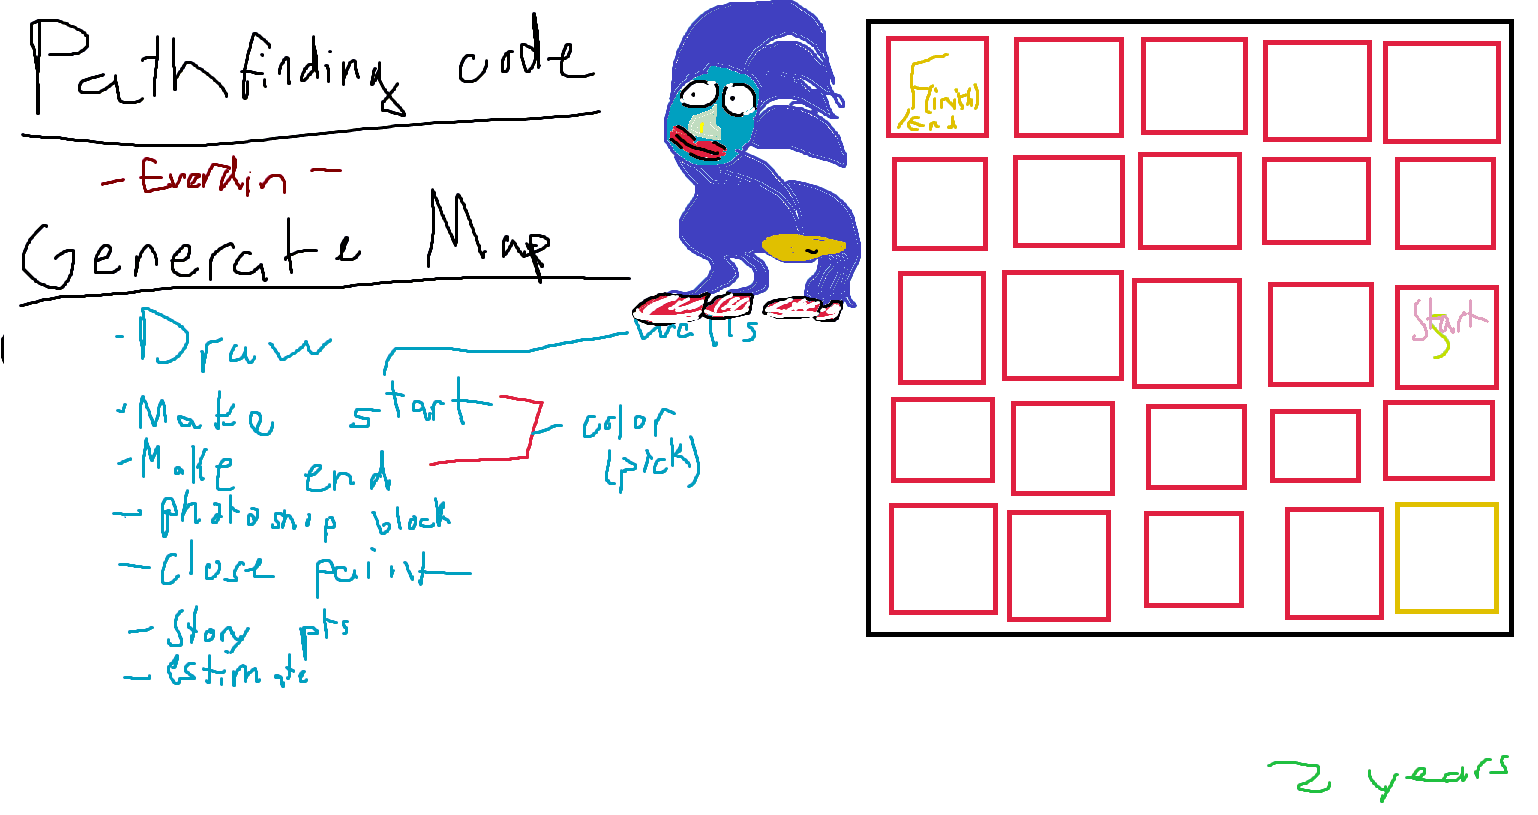 Pathfinding code
- Everdin -
Generate Map
- Draw walls
- Make start
- Make end
color
(pick)
- photoshop block
- close paint
- Story pts
- estimate
End
Start
2 years